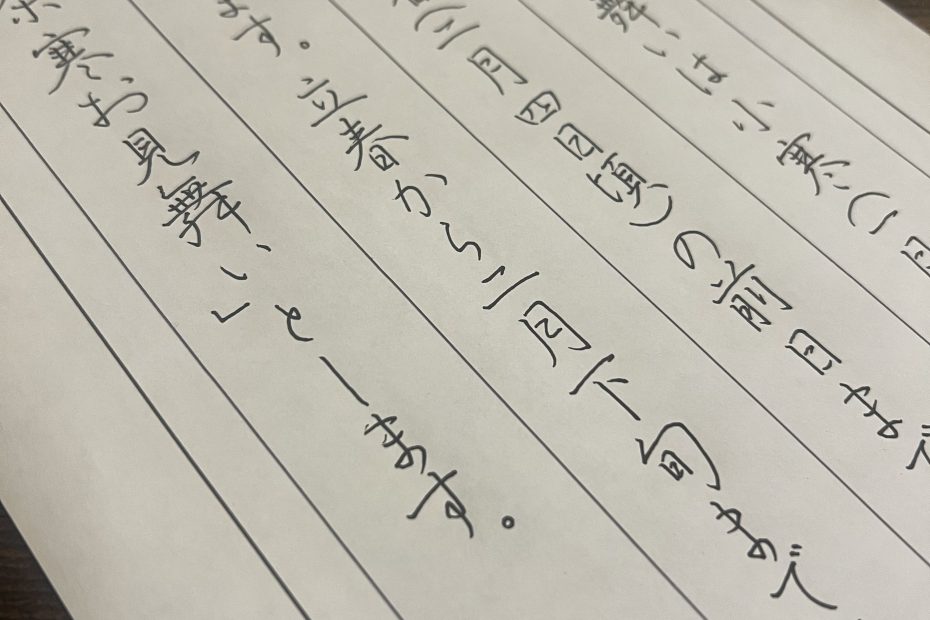 舞いは小寒(一月
(二月四日頃)の前日まで
ます。立春から二月下旬まで
寒お見舞い」とします。